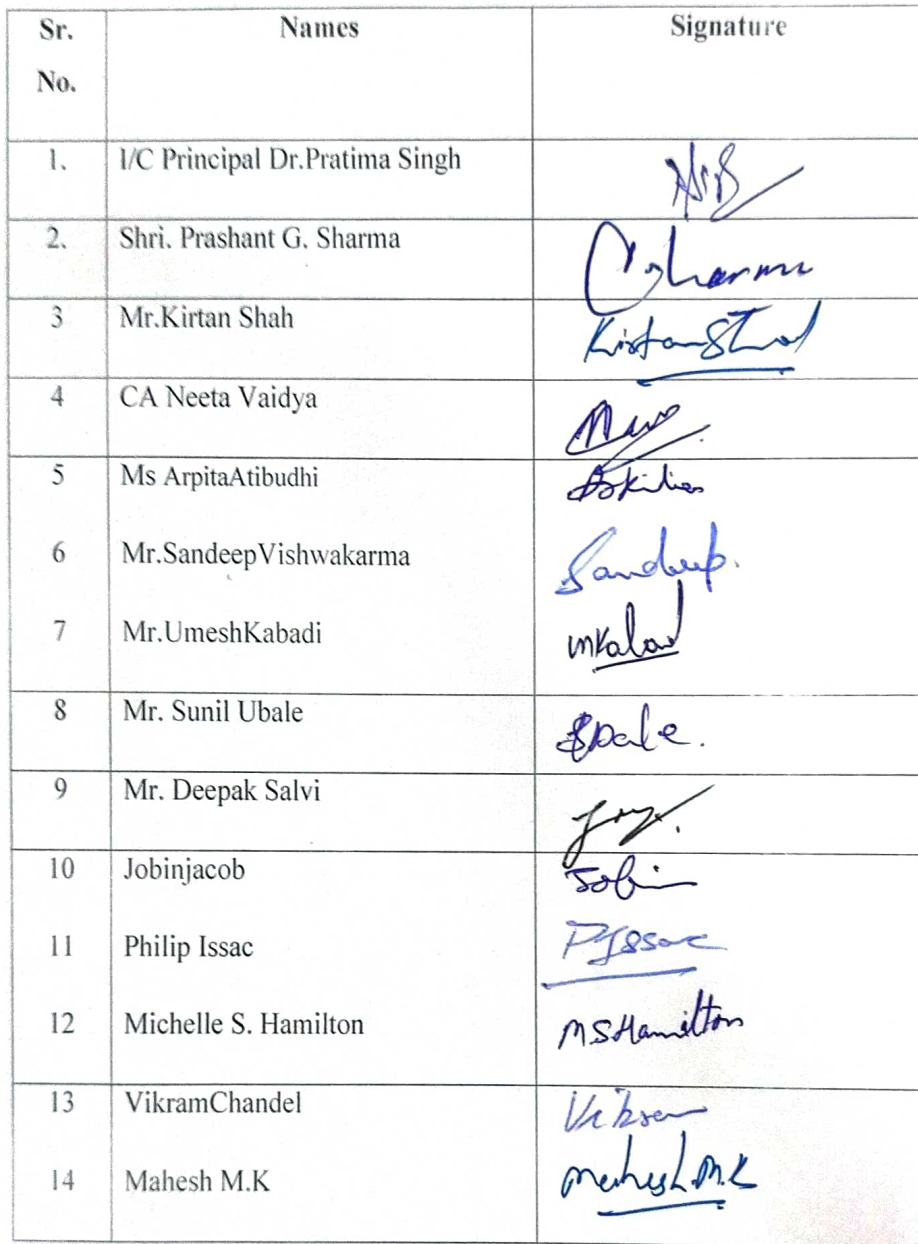 Sr. No. Names Signature
1. I/C Principal Dr.Pratima Singh
2. Shri. Prashant G. Sharma
3 Mr.Kirtan Shah KirtanShah
4 CA Neeta Vaidya
5 Ms ArpitaAtibudhi
6 Mr.SandeepVishwakarma Sandeep.
7 Mr.UmeshKabadi
8 Mr. Sunil Ubale
9 Mr. Deepak Salvi
10 Jobinjacob Jobin
11 Philip Issac PIssac
12 Michelle S. Hamilton MSHamilton
13 VikramChandel Vikram
14 Mahesh M.K Mahesh.M.K